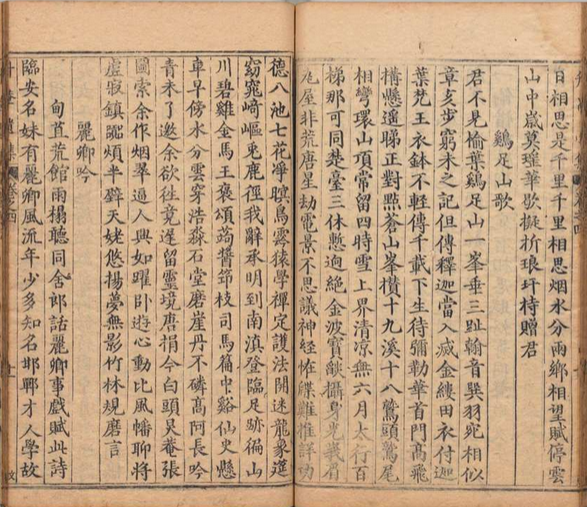 日相思是千里千里相思烟水分兩鄉相望賦停雲
山中歲莫瑤華歇擬折琅玕持贈君
鷄足山歌
君不見愉葉鷄足山一峯垂三趾翰音巽羽宛相似
章亥步窮未之記但傳釋迦當入滅金縷田衣付迦
葉芤王衣鉢不輕傳千載下生待彌勒華首門高飛
構懸遥睇正對點蒼山峯攅十九溪十八鷲頭鷲尾
相彎環山頂常留四時雪上界清凉無六月太行百
梯那可同楚臺三休慙逈絶金波寶燄攝身光我眉
瓦屋非荒唐星劫電景不思議神經恠牒難推詳功
德八池七花凈瞑鳥雲猿學禪定護法開迷龍象邃
窈窕崎嶇兎鹿徑我辭承明到南滇登臨足跡徧山
川碧雞金馬王褒頌蒟醬筇枝司馬篇中谿仙史懸
車早傍水分雲穿浩淼石堂磨崖丹不磷高阿長吟
青未了邀余欲徃竟遲留靈境唐捐今白頭昗菴張
圖索余作烟翠逼人興如躍卧遊心動比風幡聊將
虚寂鎮踰煩半壁天姥悠揚夢無影竹林規磨言
麗卿吟
旬直荒館雨榻聽同舍郎話麗卿事戲賦此詩
臨安名姝有麗卿風流年少多知名邯鄲才人學故